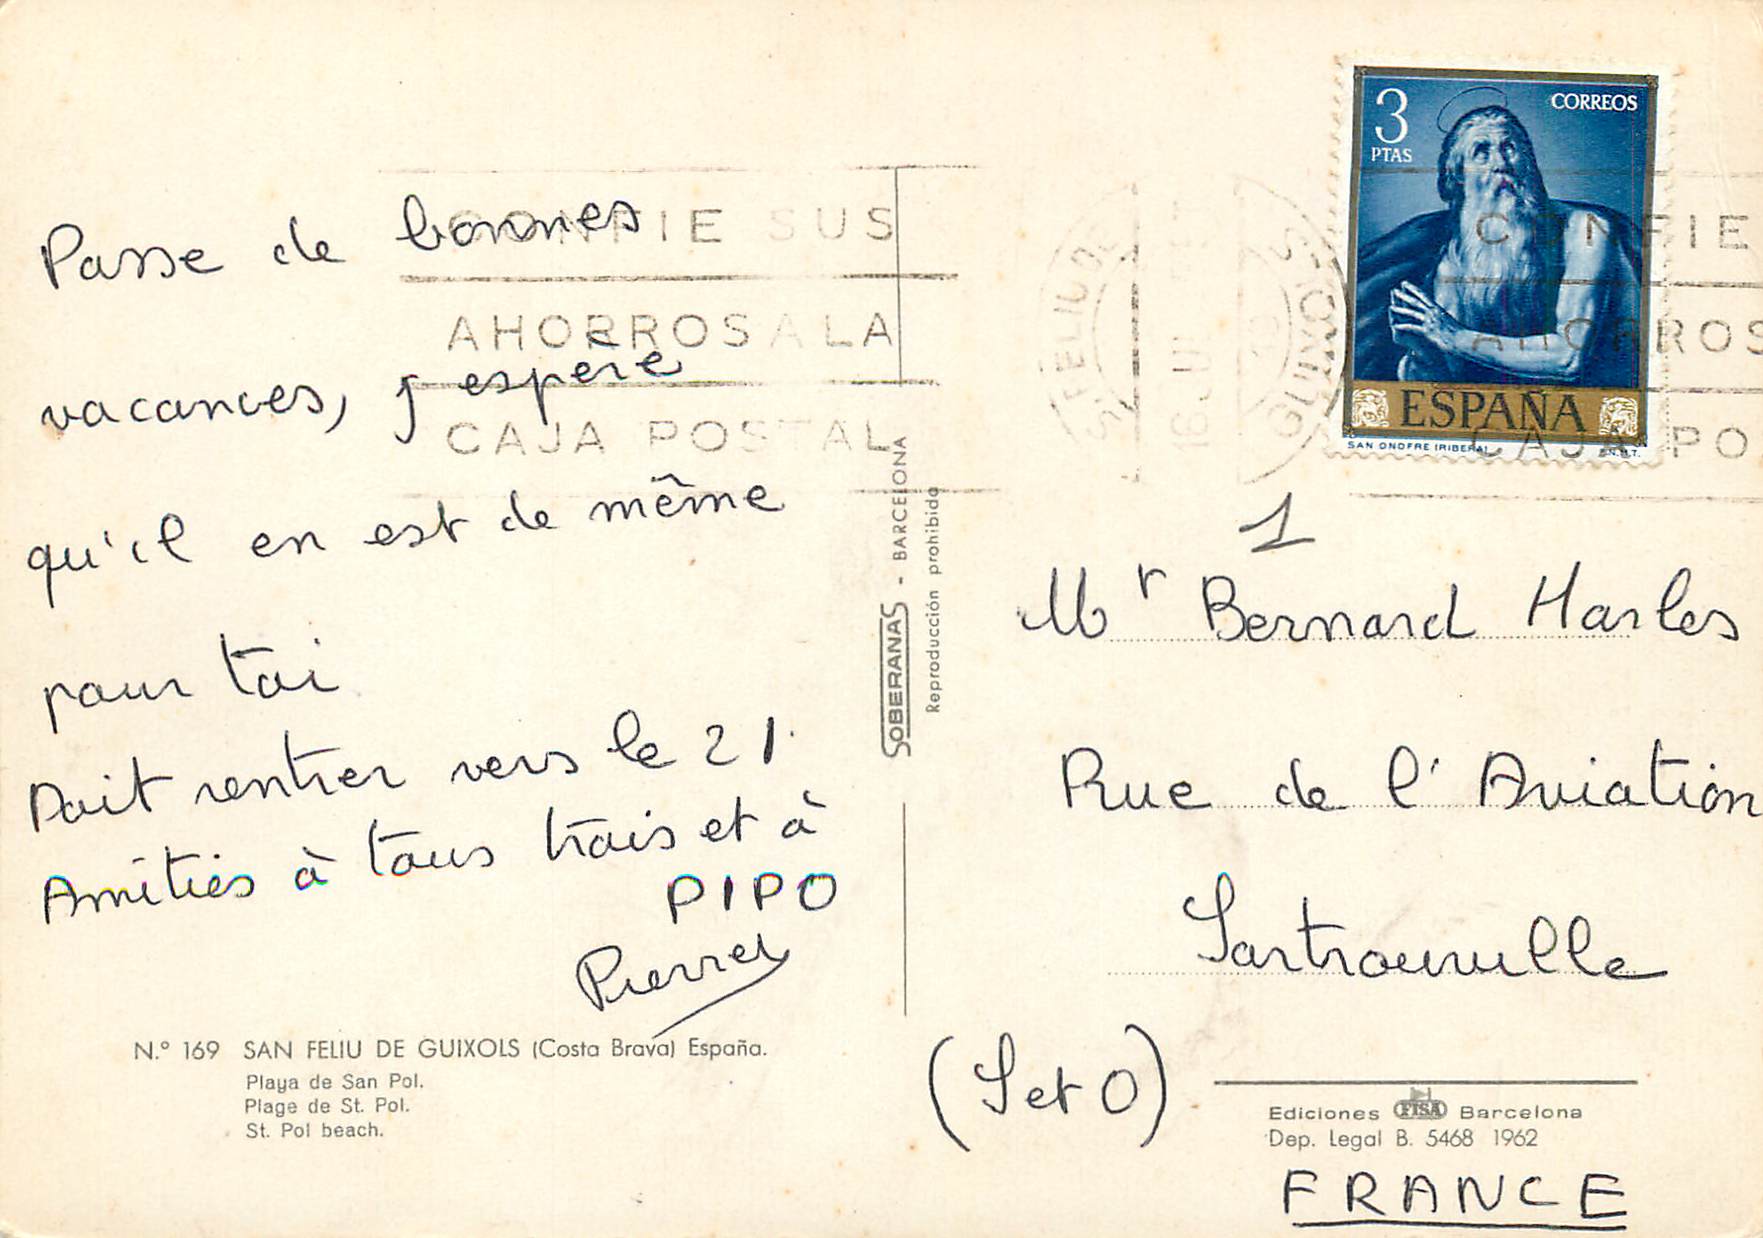 Passe de bonnes
vacances, j'espère
qu'il en est de même
pour toi
Doit rentrer vers le 21.
Amitiés à tous trois et à
PIPO
Pierrei
N.º 169 SAN FELIU DE GUIXOLS (Costa Brava) España.
Playa de San Pol.
Plage de St. Pol.
St. Pol beach.
CONFIE SUS
AHORROS A LA
CAJA POSTAL
SOBERANAS - BARCELONA
Reproducción prohibida
S. FELIU DE GUIXOLS
3
PTAS
CORREOS
ESPAÑA
SAN ONOFRE (RIBERA) F.N.M.T.
CONFIE
AHORROS
CAJA PO
1
Mr Bernard Harles
Rue de l'Aviation
Sartrouville
(S et O)
Ediciones FISA Barcelona
Dep. Legal B. 5468 1962
FRANCE